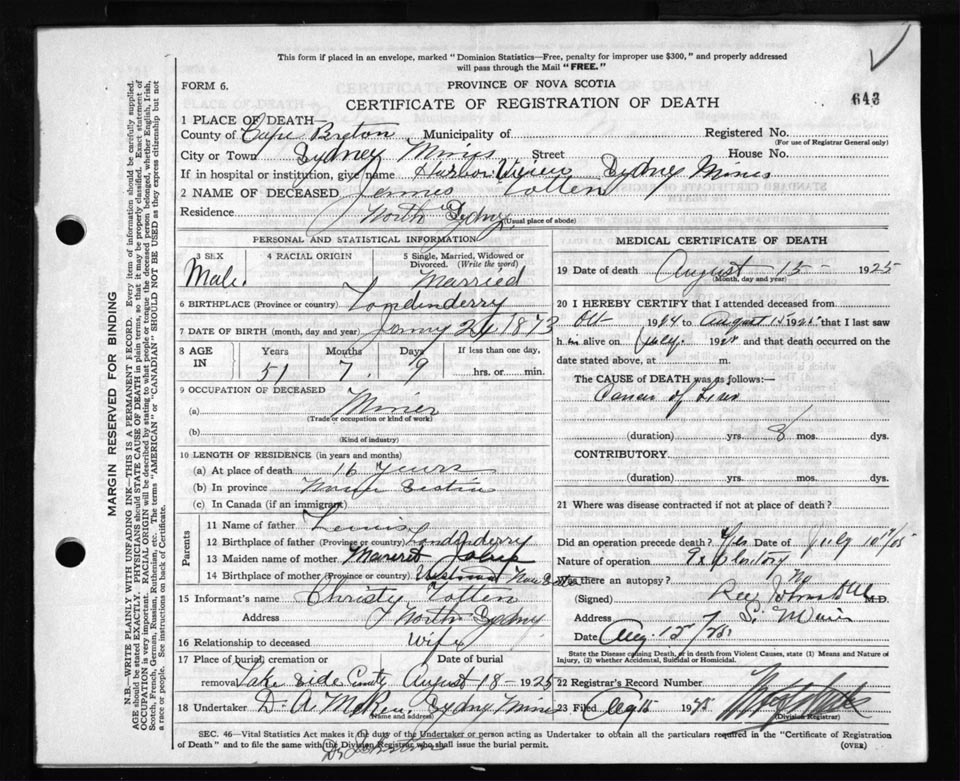 This form if placed in an envelope, marked "Dominion Statistics—Free, penalty for improper use $300," and properly addressed
will pass through the Mail "FREE."
FORM 6.
PROVINCE OF NOVA SCOTIA
CERTIFICATE OF REGISTRATION OF DEATH
643
1 PLACE OF DEATH—
County of Cape Breton Municipality of
Registered No.
(For use of Registrar General only)
City or Town Sydney Mines Street House No.
If in hospital or institution, give name Harbor View Sydney Mines
2 NAME OF DECEASED James Totten
Residence North Sydney
(Usual place of abode)
PERSONAL AND STATISTICAL INFORMATION
3 SEX
Male.
4 RACIAL ORIGIN
5 Single, Married, Widowed or
Divorced. (Write the word)
Married
6 BIRTHPLACE (Province or country) Londinderry
7 DATE OF BIRTH (month, day and year) 1873
8 AGE
IN
Years
51
Months
7
Days
9
If less than one day,
hrs. or min.
9 OCCUPATION OF DECEASED
(a) Miner
(Trade or occupation or kind of work)
(b)
(Kind of industry)
10 LENGTH OF RESIDENCE (in years and months)
(a) At place of death 16 Years
(b) In province
(c) In Canada (if an immigrant)
Parents
11 Name of father
12 Birthplace of father (Province or country) Londinderry
13 Maiden name of mother
14 Birthplace of mother (Province or country)
15 Informant's name Christy Totten
Address North Sydney
16 Relationship to deceased Wife
17 Place of burial, cremation or
removal Lake Side
Date of burial
August 18 - 1925
18 Undertaker D. A. Sydney Mines
(Name and address)
MEDICAL CERTIFICATE OF DEATH
19 Date of death August 15 - 1925
(Month, day and year)
20 I HEREBY CERTIFY that I attended deceased from
Oct 1924 to August 15 1925 that I last saw
him alive on 192 and that death occurred on the
date stated above, at m.
The CAUSE of DEATH was as follows:—
Cancer of Liver
(duration) yrs. 8 mos. dys.
CONTRIBUTORY.
(duration) yrs. mos. dys.
21 Where was disease contracted if not at place of death?
Did an operation precede death? Yes Date of July
Nature of operation Exploratory
Was there an autopsy? No
(Signed) M.D.
Address S. Mines
Date Aug. 15/25
State the Disease causing Death, or in death from Violent Causes, state (1) Means and Nature of
Injury, (2) whether Accidental, Suicidal or Homicidal.
22 Registrar's Record Number
23 Filed Aug 15 192
(Division Registrar)
SEC. 46—Vital Statistics Act makes it the duty of the Undertaker or persons acting as Undertaker to obtain all the particulars required in the "Certificate of Registration
of Death" and to file the same with the Division Registrar who shall issue the burial permit.
(OVER)
MARGIN RESERVED FOR BINDING
N.B.—WRITE PLAINLY WITH UNFADING INK—THIS IS A PERMANENT RECORD. Every item of information should be carefully supplied.
AGE should be stated EXACTLY. PHYSICIANS should STATE CAUSE OF DEATH in plain terms, so that it may be properly classified. Exact statement of
OCCUPATION is very important. RACIAL ORIGIN will be described by stating to what people or tongue the deceased person belonged, whether English, Irish,
Scotch, French, German, Russian, Ruthenian, etc. The terms "AMERICAN" or "CANADIAN" SHOULD NOT BE USED as they express citizenship but not
a race or people. See instructions on back of Certificate.